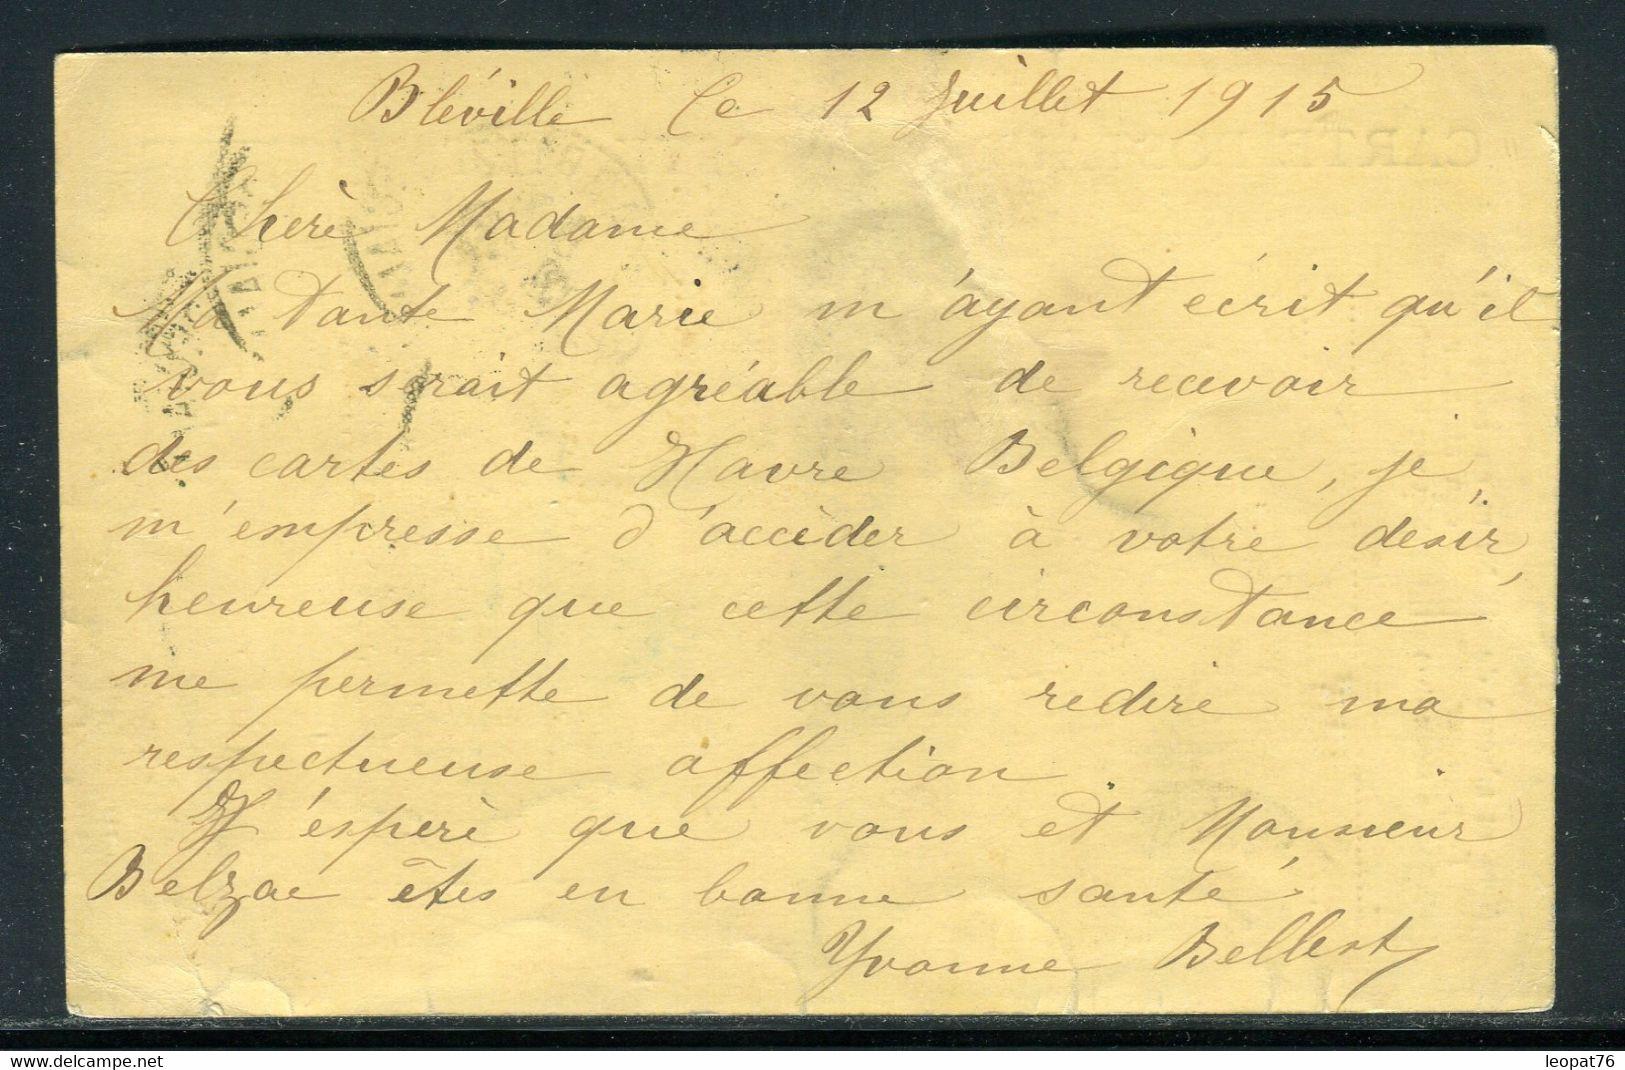 Bléville le 12 Juillet 1915
Cherè Madame
Ma tante Marie m'ayant écrit qu'il
vous serait agréable de recevoir
des cartes de Havre Belgique, je
m'empresse d'accéder à votre desir,
heureuse que cette circonstance
me permette de vous redire ma
respectueuse affection.
J'ésperè que vous et Monsieur
Belzac êtes en bonne santé
Yvonne Bellest
delcampe.net
leopat76